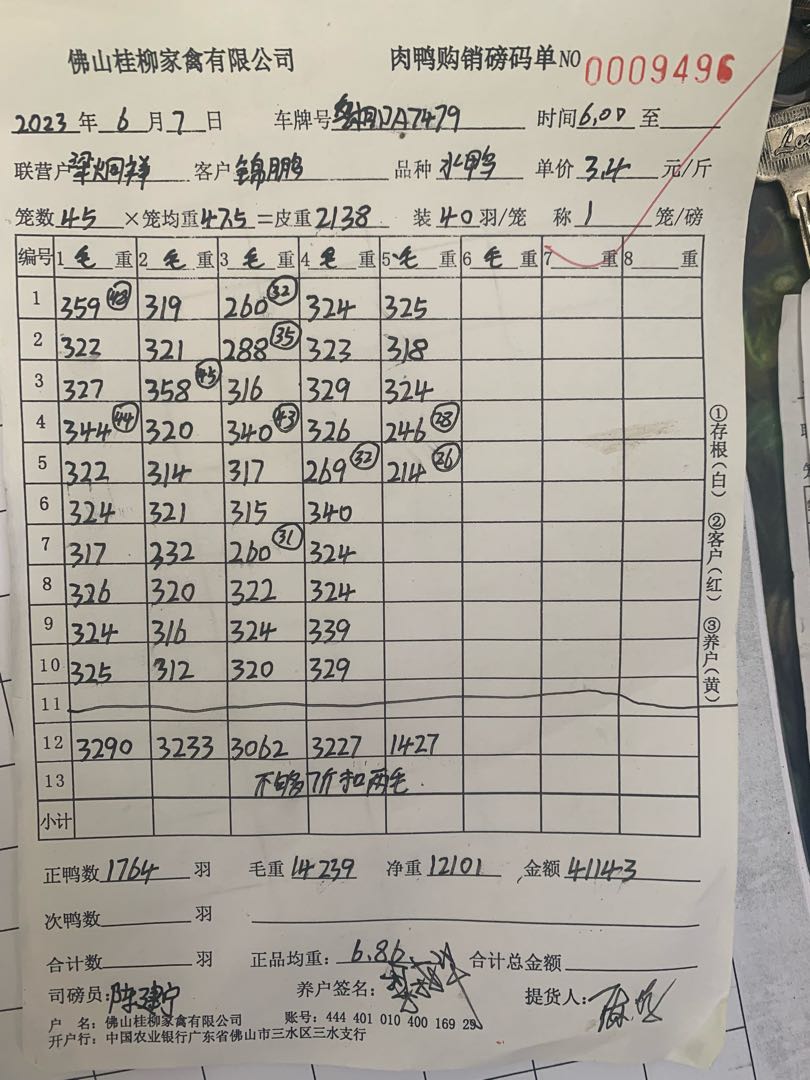 佛山桂柳家禽有限公司 肉鸭购销磅码单NO 0009496
2023年6月7日 车牌号 A7479 时间6,00至
联营户梁炳祥 客户锦鹏 品种水鸭 单价3.4元/斤
笼数45×笼均重47.5=皮重2138 装40羽/笼 称1笼/磅
编号 1毛重 2毛重 3毛重 4毛重 5毛重 6毛重 7重 8重
1 359 (48) 319 260 (32) 324 325
2 323 321 288 (35) 323 318
3 327 358 (45) 316 329 324
4 344 (44) 320 340 (43) 326 246 (28)
5 322 314 317 269 (32) 214 (26)
6 324 321 315 340
7 317 332 260 (31) 324
8 326 320 322 324
9 324 316 324 339
10 325 312 320 329
11
12 3290 3233 3062 3227 1427
13 不够7斤扣两毛.
小计
正鸭数1764羽 毛重14239 净重12101 金额41143
次鸭数 羽
合计数 羽 正品均重:6.86 合计总金额
司磅员:陈建宁 养户签名: 提货人:
户 名:佛山桂柳家禽有限公司 账号:444 401 010 400 169 29
开户行:中国农业银行广东省佛山市三水区三水支行
①存根(白) ②客户(红) ③养户(黄)